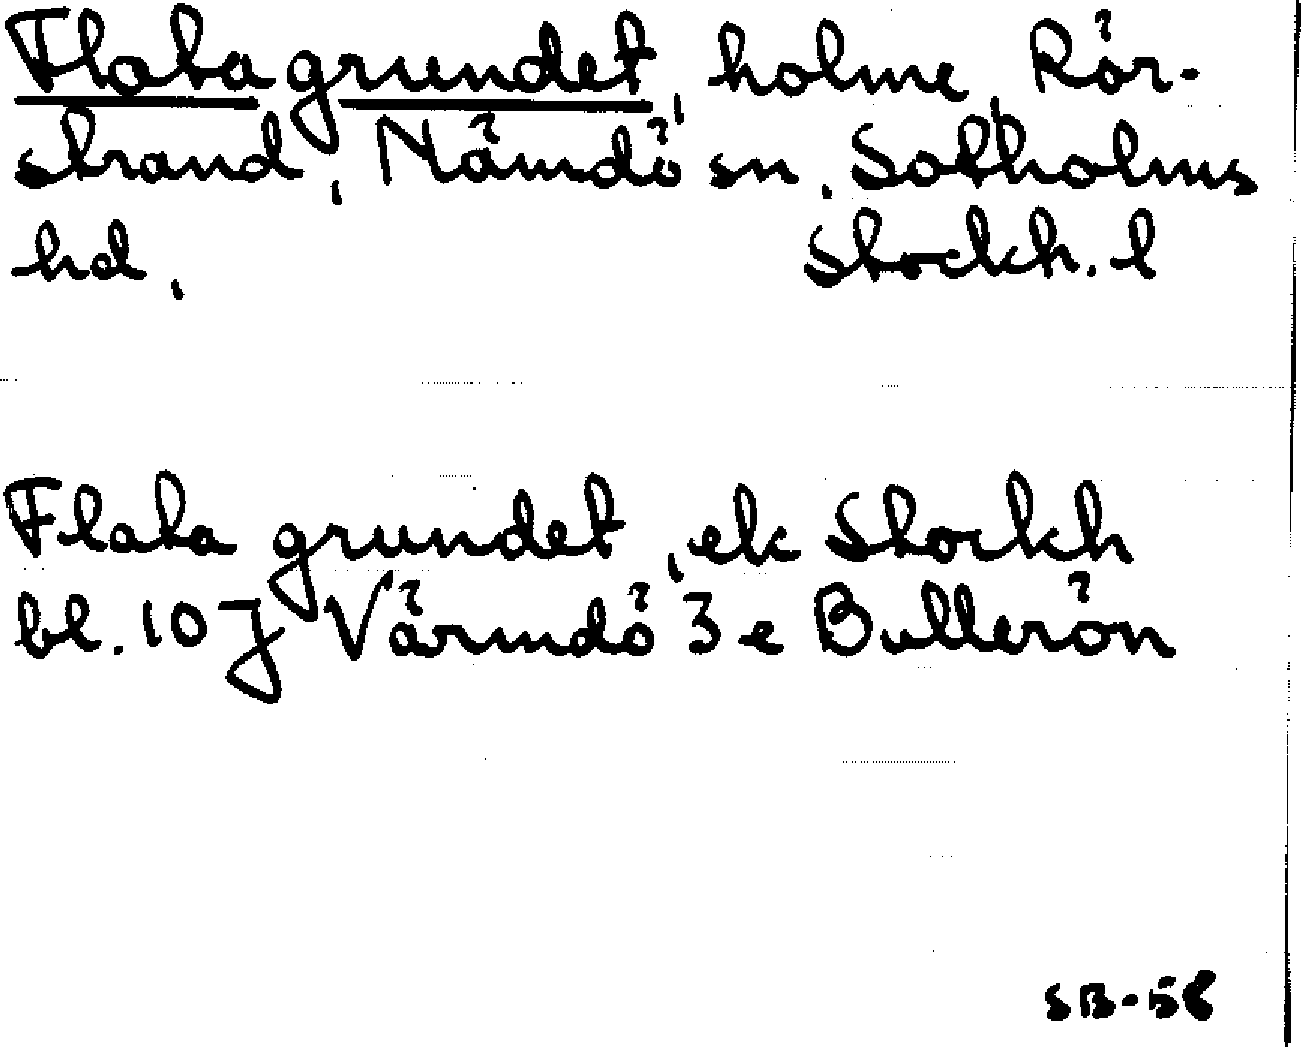 Flatagrundet, holme, Rör-
strand, Nämdö sn, Sotholms
hd, Stockh. l
Flata grundet, ek Stockh
bl. 10 J Värmdö 3 e Bullerön
SB-58